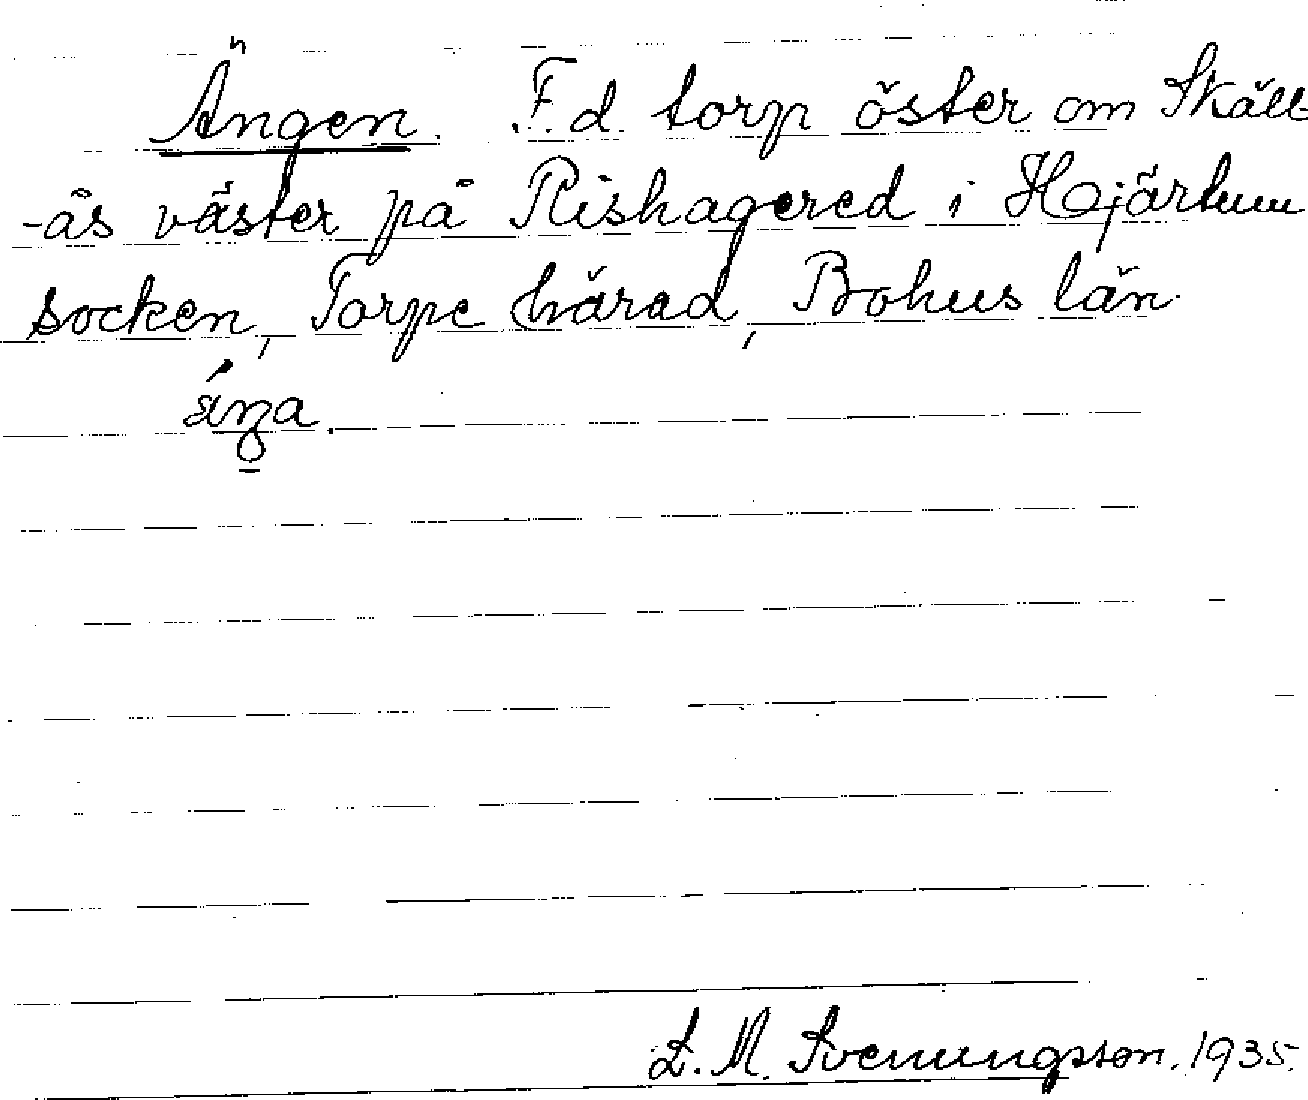 Ängen. F.d. torp öster om Skäll-
-ås väster på Rishagered i Hjärtum
socken, Torpe härad, Bohus län.
L. M. Svenungsson. 1935.